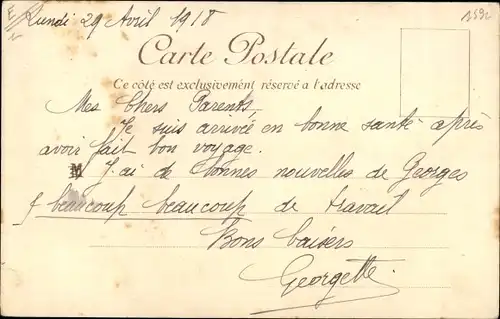 Lundi 29 Avril 1918
Carte Postale
Ce côté est exclusivement réservé a l'adresse
Mes Chers Parents
Je suis arrivée en bonne santé après
avoir fait bon voyage.
M J'ai de bonnes nouvelles de Georges
beaucoup beaucoup de travail
Bons baisers
Georgette.